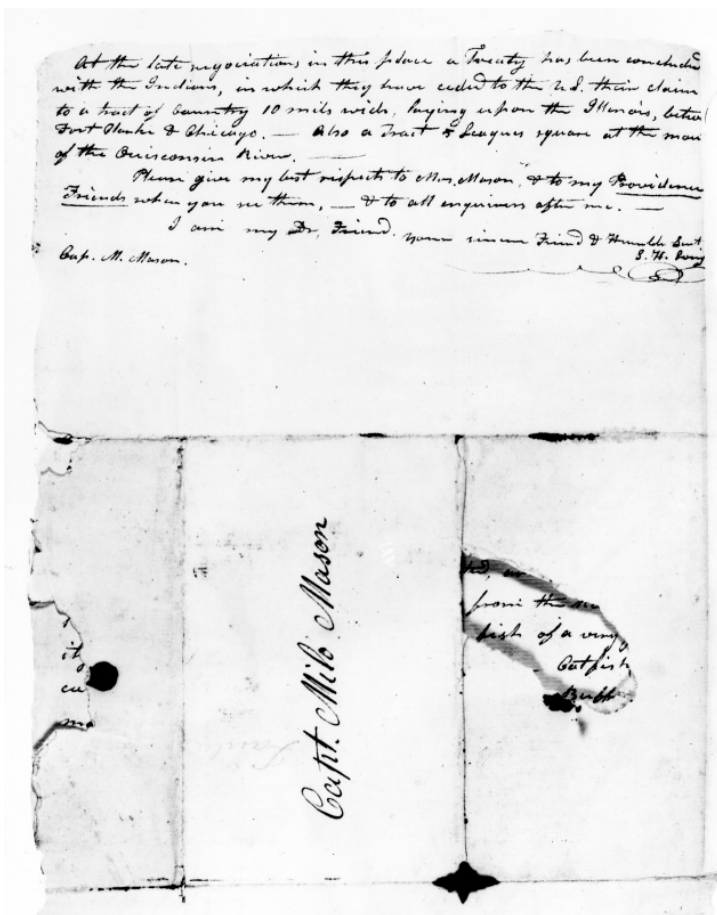 At the late negociations in this place a Treaty has been concluded
with the Indians, in which they have ceded to the U.S. their claim
to a tract of Country 10 mils wide, laying upon the Illinois, betw
Fort Clarke & Chicago. — Also a Tract 5 Leagues square at the mou
of the Ouisconsin River. —
Please give my best respects to Mrs. Mason, & to my Providence
Friends when you see them, — & to all enquirers after me. —
I am my Dr. Friend. your sincere Friend & Humble Servt.
S. H. Long
Cap. M. Mason.
Capt. Milo Mason
from the
fish of a very
Catfish
Buff
it
cu
ma